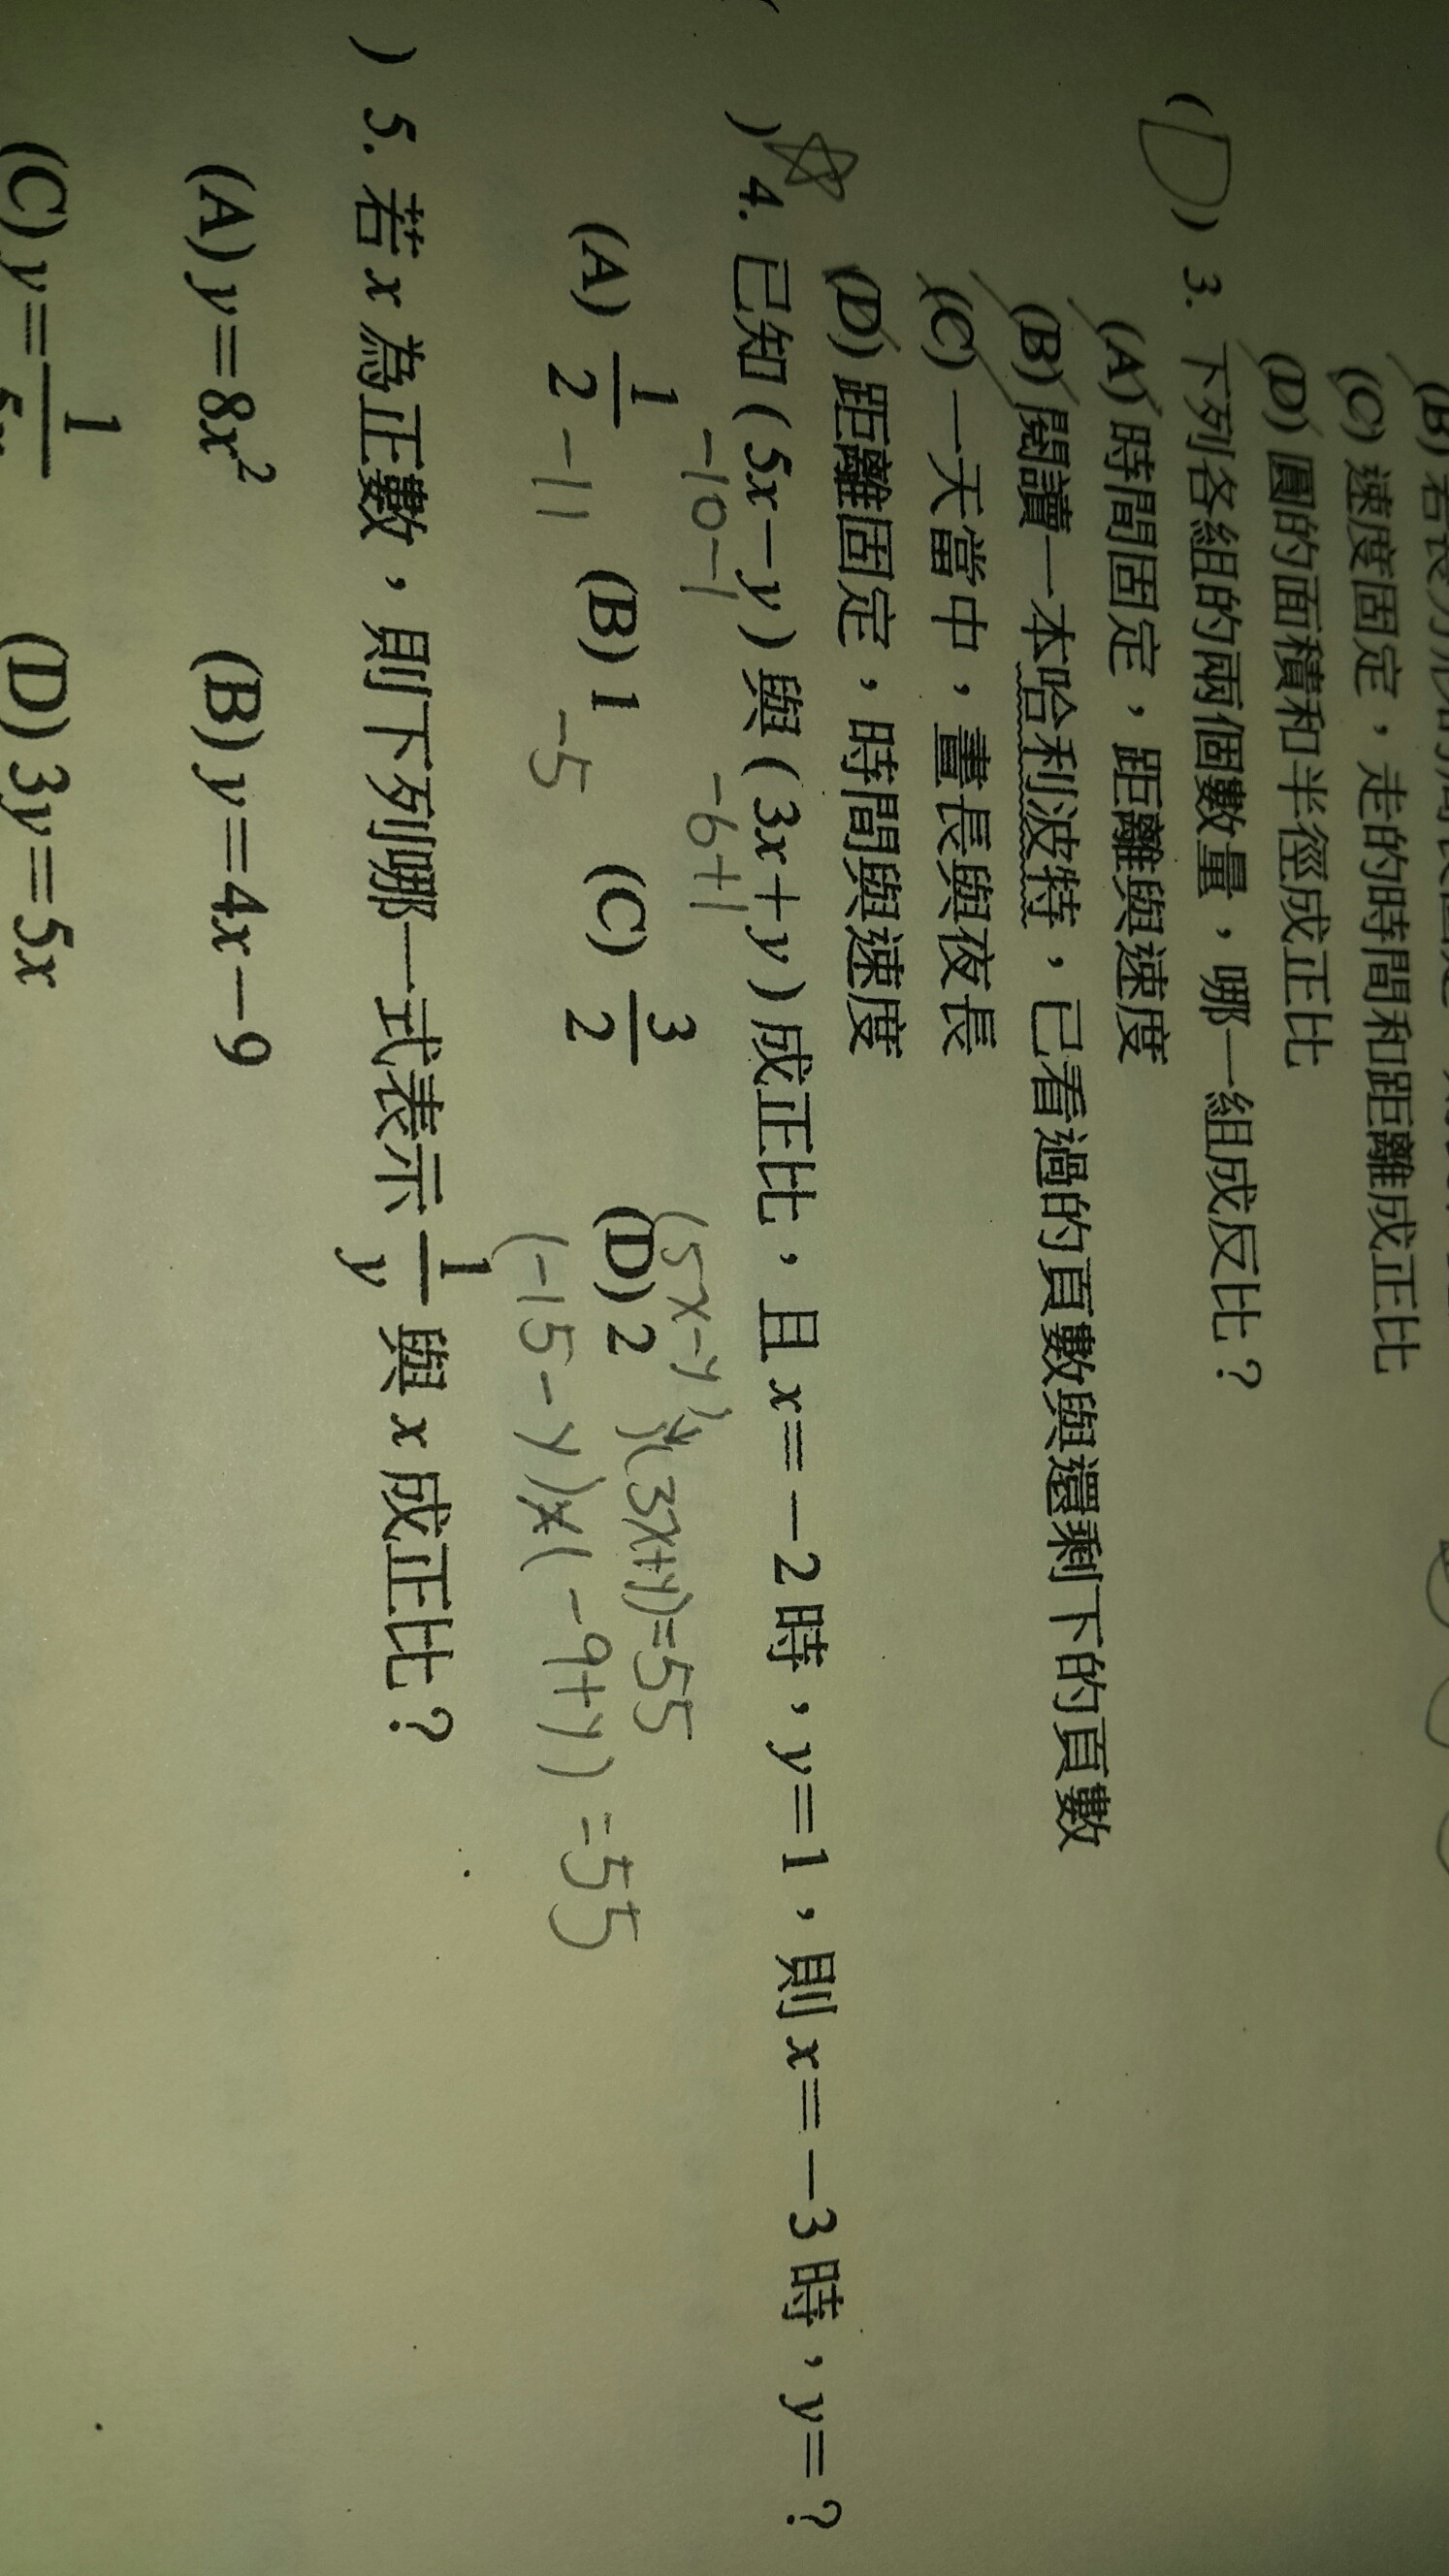 (C) 速度固定，走的時間和距離成正比
(D) 圓的面積和半徑成正比
(D) 3. 下列各組的兩個數量，哪一組成反比？
(A) 時間固定，距離與速度
(B) 閱讀一本哈利波特，已看過的頁數與還剩下的頁數
(C) 一天當中，晝長與夜長
(D) 距離固定，時間與速度
) 4. 已知 (5x－y) 與 (3x＋y) 成正比，且 x＝－2 時，y＝1，則 x＝－3 時，y＝？
-10-1 -6+1 (5x-y)×(3x+y)=55
(A) 1/2 (B) 1 (C) 3/2 (D) 2
-11 -5 (-15-y)×(-9+y)=55
) 5. 若 x 為正數，則下列哪一式表示 1/y 與 x 成正比？
(A) y＝8x² (B) y＝4x－9
(D) 3y＝5x